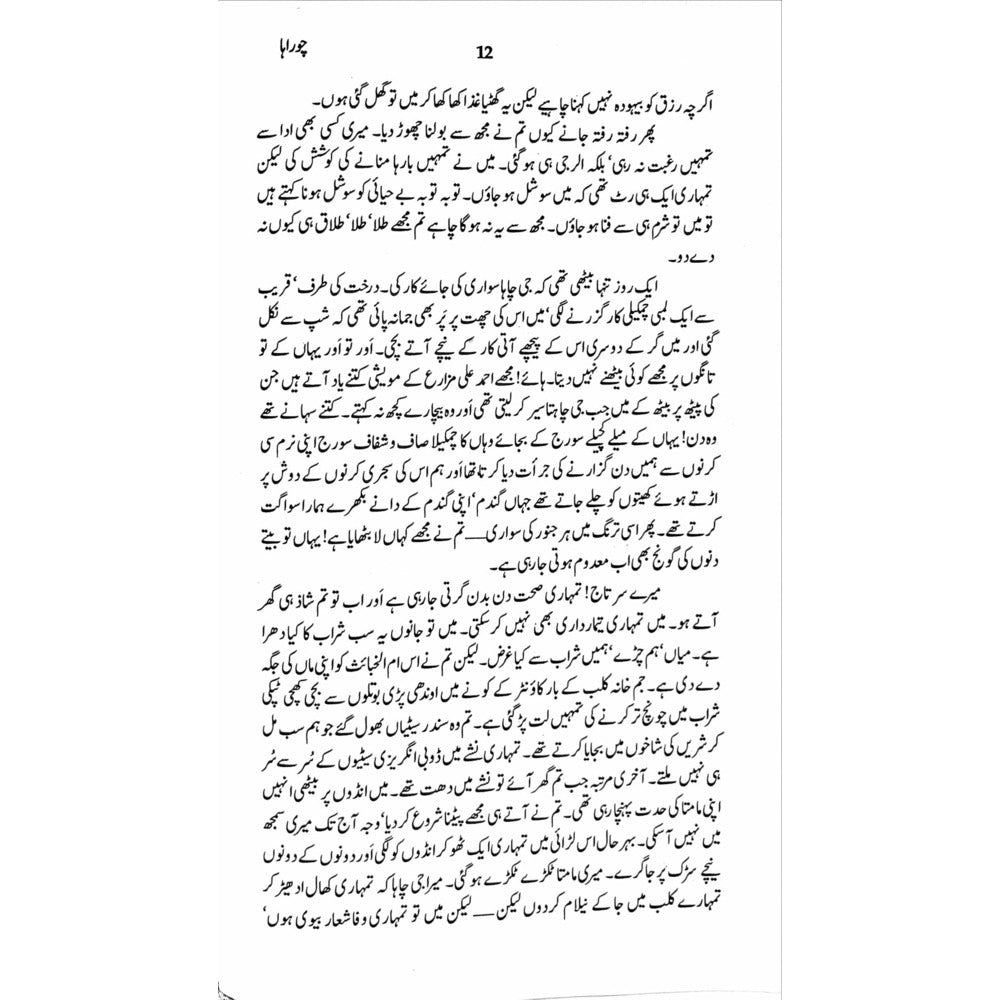 چوراہا
12
اگرچہ رزق کو بیہودہ نہیں کہنا چاہیے لیکن یہ گھٹیا غذا کھا کھا کر میں تو گھل گئی ہوں۔
پھر رفتہ رفتہ جانے کیوں تم نے مجھ سے بولنا چھوڑ دیا۔ میری کسی بھی ادا سے
تمہیں رغبت نہ رہی‘ بلکہ الرجی ہی ہو گئی۔ میں نے تمہیں بارہا منانے کی کوشش کی لیکن
تمہاری ایک ہی رٹ تھی کہ میں سوشل ہو جاؤں۔ توبہ توبہ بے حیائی کو سوشل ہونا کہتے ہیں
تو میں تو شرم ہی سے فنا ہو جاؤں۔ مجھ سے یہ نہ ہو گا چاہے تم مجھے طلا‘ طلا‘ طلاق ہی کیوں نہ
دے دو۔
ایک روز تنہا بیٹھی تھی کہ جی چاہا سواری کی جائے کار کی۔ درخت کی طرف‘ قریب
سے ایک لمبی چمکیلی کار گزرنے لگی‘ میں اس کی چھت پر پَر بھی جما نہ پائی تھی کہ شپ سے نکل
گئی اور میں گر کے دوسری اس کے پیچھے آتی کار کے نیچے آتے بچی۔ اَور تو اَور یہاں کے تو
تانگوں پر مجھے کوئی بیٹھنے نہیں دیتا۔ ہائے! مجھے احمد علی مزارع کے مویشی کتنے یاد آتے ہیں جن
کی پیٹھ پر بیٹھ کے میں جب جی چاہتا سیر کر لیتی تھی اَور وہ بیچارے کچھ نہ کہتے۔ کتنے سہانے تھے
وہ دن! یہاں کے میلے کچیلے سورج کے بجائے وہاں کا چمکیلا صاف و شفاف سورج اپنی نرم سی
کرنوں سے ہمیں دن گزارنے کی جرأت دیا کرتا تھا اَور ہم اس کی سجری کرنوں کے دوش پر
اڑتے ہوئے کھیتوں کو چلے جاتے تھے جہاں گندم‘ اپنی گندم کے دانے بکھرے ہمارا سواگت
کرتے تھے۔ پھر اسی ترنگ میں ہر جنور کی سواری__تم نے مجھے کہاں لا بٹھایا ہے! یہاں تو بیتے
دنوں کی گونج بھی اب معدوم ہوتی جا رہی ہے۔
میرے سرتاج! تمہاری صحت دن بدن گرتی جا رہی ہے اَور اب تو تم شاذ ہی گھر
آتے ہو۔ میں تمہاری تیمارداری بھی نہیں کر سکتی۔ میں تو جانوں یہ سب شراب کا کیا دھرا
ہے۔ میاں‘ ہم چڑے‘ ہمیں شراب سے کیا غرض۔ لیکن تم نے اس ام الخبائث کو اپنی ماں کی جگہ
دے دی ہے۔ جم خانہ کلب کے بار کاؤنٹر کے کونے میں اوندھی پڑی بوتلوں سے بچی کھچی ٹپکی
شراب میں چونچ تر کرنے کی تمہیں لت پڑ گئی ہے۔ تم وہ سندر سیٹیاں بھول گئے جو ہم سب مل
کر شریں کی شاخوں میں بجایا کرتے تھے۔ تمہاری نشے میں ڈوبی انگریزی سیٹیوں کے سُر سے سُر
ہی نہیں ملتے۔ آخری مرتبہ جب تم گھر آئے تو نشے میں دھت تھے۔ میں انڈوں پر بیٹھی انہیں
اپنی مامتا کی حدت پہنچا رہی تھی۔ تم نے آتے ہی مجھے پیٹنا شروع کر دیا‘ وجہ آج تک میری سمجھ
میں نہیں آ سکی۔ بہر حال اس لڑائی میں تمہاری ایک ٹھوکر انڈوں کو لگی اَور دونوں کے دونوں
نیچے سڑک پر جا گرے۔ میری مامتا ٹکڑے ٹکڑے ہو گئی۔ میرا جی چاہا کہ تمہاری کھال ادھیڑ کر
تمہارے کلب میں جا کے نیلام کر دوں لیکن__لیکن میں تو تمہاری وفا شعار بیوی ہوں‘